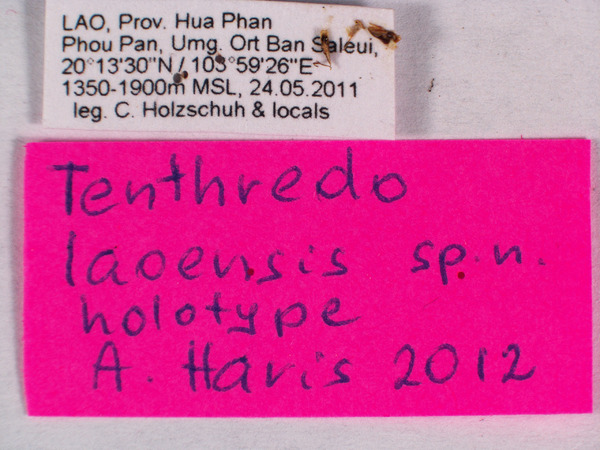 LAO, Prov. Hua Phan
Phou Pan, Umg. Ort Ban Saleui,
20°13'30"N / 103°59'26"E
1350-1900m MSL, 24.05.2011
leg. C. Holzschuh & locals
Tenthredo
laoensis sp.n.
holotype
A. Haris 2012